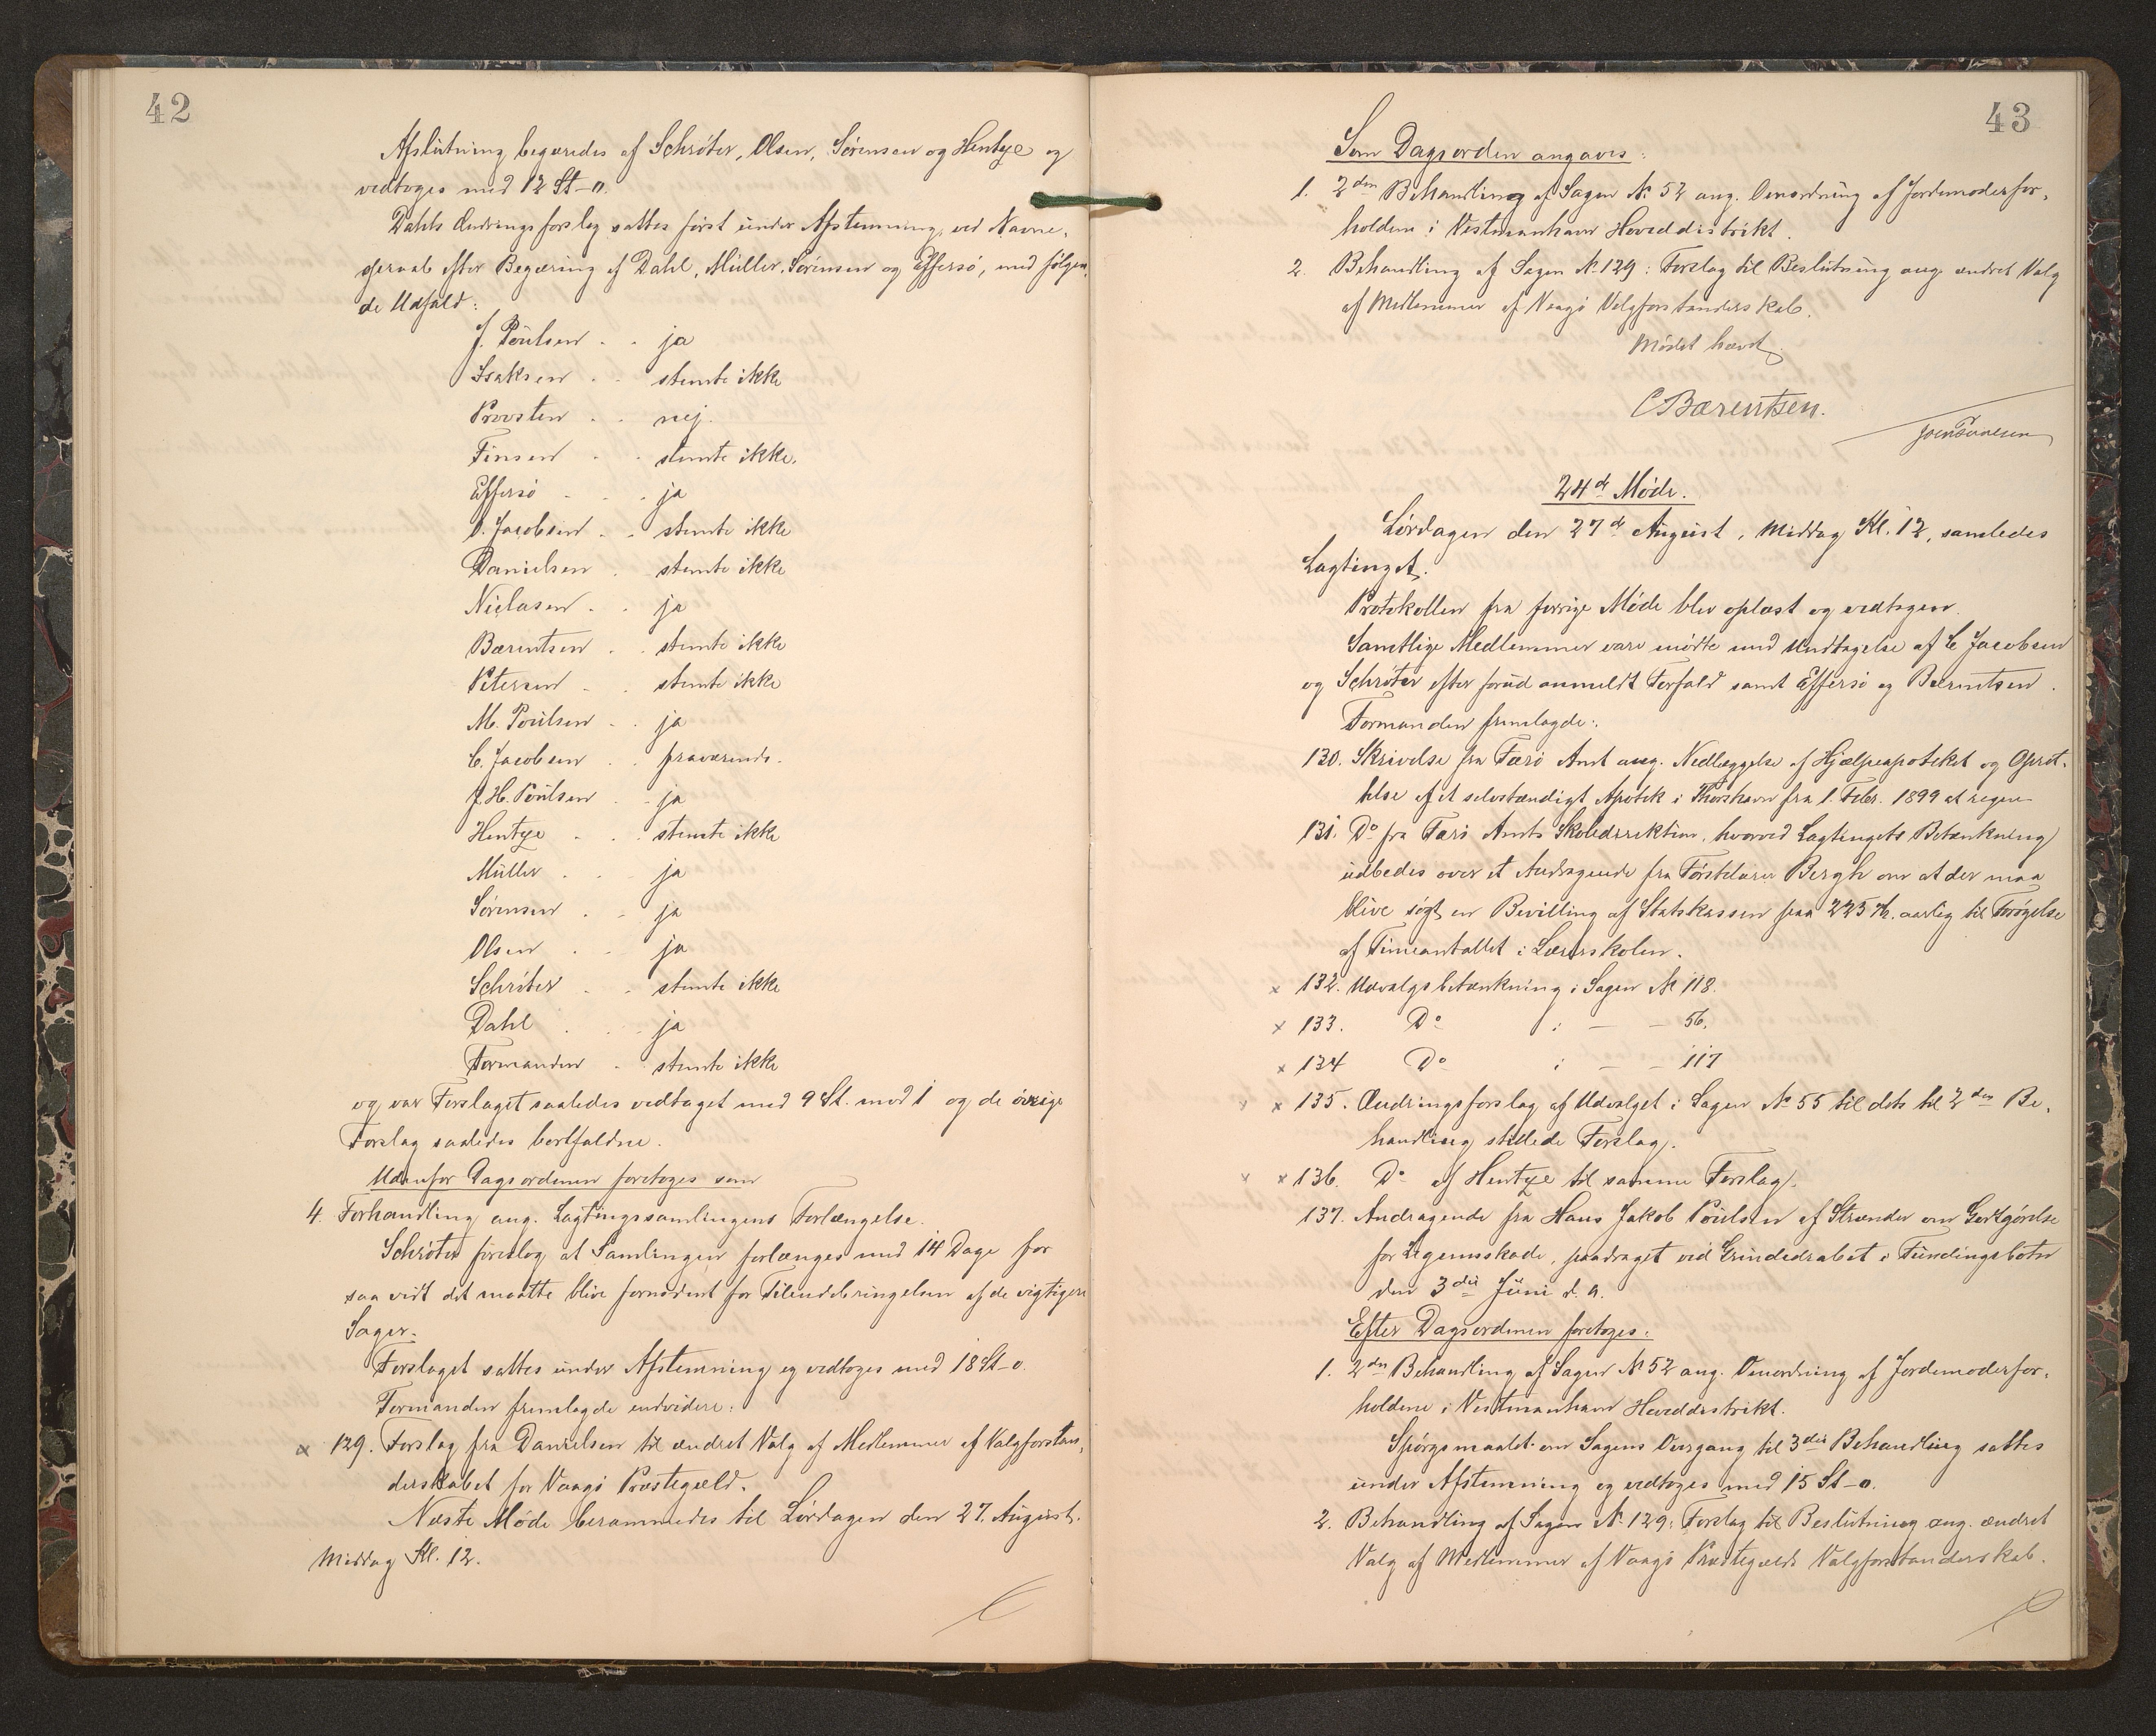 42
Afslutning begæredes af Schrøter, Olsen, Sørensen og Hentze og
vedtoges med 12 St-o.
Dahls Ændringsforslag sattes først under Afstemning, ved Navne-
opraab efter Begæring af Dahl, Müller, Sørensen og Effersø, med følgen-
de Udfald:
J. Poulsen - - ja
Isaksen - - stemte ikke
Provsten - - nej.
Finsen - - stemte ikke.
Effersø - - - ja
O. Jacobsen - - stemte ikke
Danielsen - stemte ikke
Nielasen - - ja
Bærentsen - - stemte ikke
Petersen - - stemte ikke
M. Poulsen - - ja
C. Jacobsen - - fraværende.
J. H. Poulsen - - ja
Hentze - - - stemte ikke
Müller - - - ja
Sørensen - - ja
Olsen - - ja
Schrøter - - stemte ikke
Dahl - - - ja
Formanden - stemte ikke
og var Forslaget saaledes vedtaget med 9 St. mod 1 og de øvrige
Forslag saaledes bortfaldne.
Udenfor Dagsordenen foretoges som
4. Forhandling ang. Lagtingssamlingens Forlængelse.
Schrøter foreslog at Samlingen forlænges med 14 Dage for
saa vidt det maatte blive fornødent for Tilendebringelsen af de vigtigere
Sager.
Forslaget sattes under Afstemning og vedtoges med 18 St-o.
Formanden fremlagde endvidere:
x 129. Forslag fra Danielsen til ændret Valg af Medlemmer af Valgforstan-
derskabet for Vaagø Præstegæld.
Næste Møde berammedes til Lørdagen den 27. August.
Middag Kl. 12.
43
Som Dagsorden angaves:
1. 2den Behandling af Sagen № 52 ang. Omordning af Jordemoderfor-
holdene i Vestmanhavn Hoveddistrikt.
2. Behandling af Sagen № 129: Forslag til Beslutning ang. ændret Valg
af Medlemmer af Vaagø Valgforstanderskab.
Mødet hævet
C Bærentsen.
24de Møde.
Lørdagen den 27de August, Middag Kl. 12, samledes
Lagtinget.
Protokollen fra forrige Møde blev oplæst og vedtagen.
Samtlige Medlemmer vare mødte med Undtagelse af C Jacobsen
og Schrøter efter forud anmeldt Forfald samt Effersø og Bærentsen.
Formanden fremlagde:
130. Skrivelse fra Færø Amt ang. Nedlæggelse af Hjælpeapoteket og Opret-
telse af et selvstændigt Apotek i Thorshavn fra 1. Febr. 1899 at regne
131. Do fra Færø Amts Skoledirektion, hvorved Lagtingets Betænkning
udbedes over et Andragende fra Førstelærer Bergh om at der maa
blive søgt en Bevilling af Statskassen paa 225 Kr. aarlig til Forøgelse
af Timeantallet i Lærerskolen.
x 132. Udvalgsbetænkning i Sagen № 118.
x 133. Do i - - 56.
x 134 Do i - - 117
x x 135. Ændringsforslag af Udvalget i Sagen № 55 til dets til 2den Be-
handling stillede Forslag.
x x 136. Do af Hentze til samme Forslag.
137. Andragende fra Hans Jakob Poulsen af Strænder om Godtgørelse
for Legemsskade, paadraget ved Grindedrabet i Fundingsbotn
den 3die Juni d. A.
Efter Dagsordenen foretoges:
1. 2den Behandling af Sagen № 52 ang. Omordning af Jordemoderfor-
holdene i Vestmanhavn Hoveddistrikt.
Spørgsmaalet om Sagens Overgang til 3die Behandling sattes
under Afstemning og vedtoges med 15 St-o.
2. Behandling af Sagen № 129: Forslag til Beslutning ang. ændret
Valg af Medlemmer af Vaagø Præstegælds Valgforstanderskab.